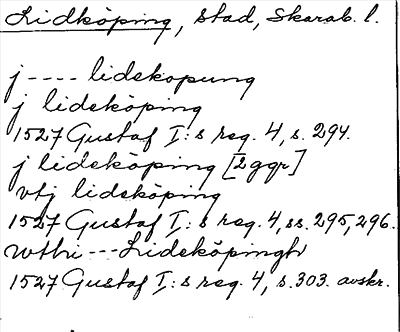 Lidköping, stad, Skarab. l.
j---- lidekopung
j lideköping
1527 Gustaf I:s reg. 4, s. 294.
j lideköping [2 ggr]
vtj lideköping
1527 Gustaf I:s reg. 4, ss. 295, 296.
wthi --- Lideköpingh
1527 Gustaf I:s reg. 4, s. 303. avskr.